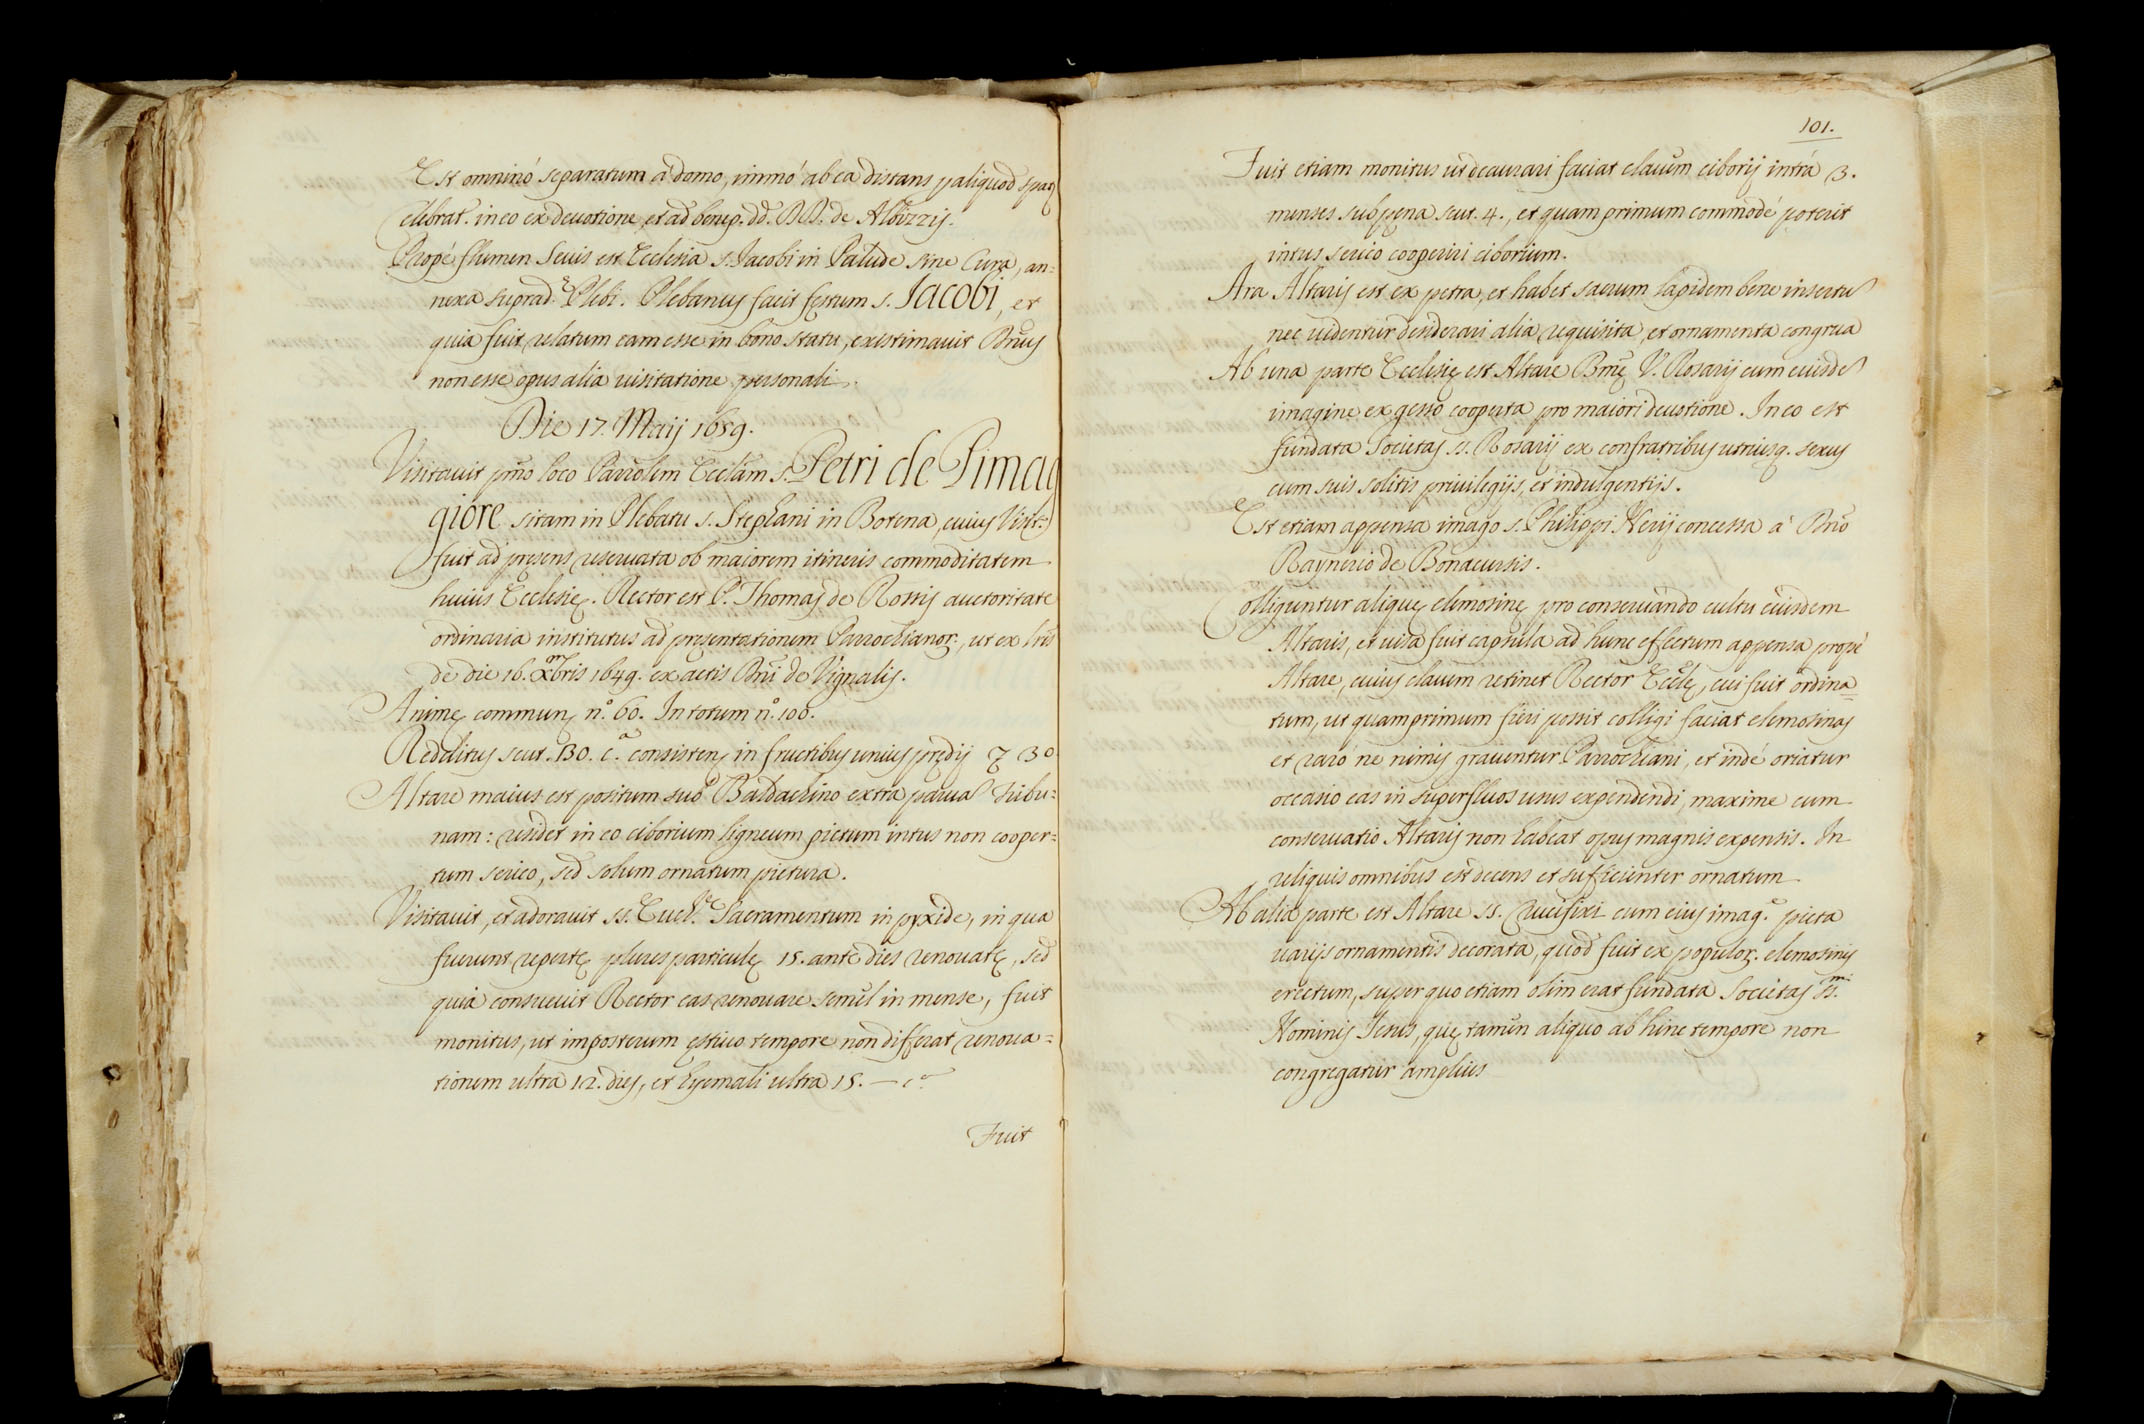 Est omninò separatum à domo, immò ab ea distans p aliquod spat
Celebrat. in eo ex deuotione, et ad benep. dd. DD. de Albizzijs.
Propè flumen Seuis est Ecclesia s. Jacobi in Palude sine Cura, an=
nexa suprad.ᵉ Plebi. Plebanus facit festum s. Jacobi, et
quia fuit relatum eam esse in bono statu, existimauit
non esse opus alia uisitatione personali.
Die 17. Maij 1659.
Visitauit pmo loco Parrolem Ecclam s. Petri de Pimag
giore sitam in Plebatu s. Stephani in Botena, cuius Visit:
fuit ad presens reseruata ob maiorem itineris commoditatem
huius Ecclesię. Rector est P. Thomas de Rossis auctoritate
ordinaria institutus ad presentationem Parrochianor:, ut ex lris
de die 16. Xmbris 1649. ex actis Bni de Vignalis.
Animę communę n.º 60. In totum n.º 100.
Redditus scut. 130. c.ᵃ consistens in fructibus unius prędij
Altare maius est positum sub Baldachino extra parua Tribu:
nam: residet in eo ciborium ligneum pictum intus non cooper=
tum serico, sed solum ornatum pictura.
Visitauit, et adorauit ss. Euch.ᵉ Sacramentum in pyxide, in qua
fuerunt repertę plures particulę 15. ante dies renouatę, sed
quia consueuit Rector eas renouare semel in mense, fuit
monitus, ut imposterum ęstiuo tempore non differat renoua=
tionem ultra 12. dies, et hyemali ultra 15.
Fuit
101.
Fuit etiam monitus ut deaurari faciat clauem ciborij intrà 3.
menses sub pena scut. 4., et quam primum commodè poterit
intus serico cooperiri ciborium.
Ara Altaris est ex petra, et habet sacrum lapidem bene insertu
nec uidentur desiderari alia requisita, et ornamenta congrua
Ab una parte Ecclesię est Altare Bmę V. Rosarij cum eiusde
imagine ex gesso cooperta pro maiori deuotione. In eo est
fundata Societas ss. Rosarij ex confratribus utriusq. sexus
cum suis solitis priuilegijs, et indulgentijs.
Est etiam appensa imago s. Philippi Nerij concessa à
Raynerio de Bonacursis.
Colliguntur aliquę elemosinę pro conseruando cultu eiusdem
Altaris, et uisa fuit capsula ad hunc effectum appensa propè
Altare, cuius clauem retinet Rector Ecclę, cui fuit ordina=
tum, ut quamprimum fieri possit colligi faciat elemosinas
et rarò ne nimis grauentur Parrochiani, et indè oriatur
occasio eas in superfluos usus expendendi, maxime cum
conseruatio Altaris non habeat opus magnis expensis. In
reliquis omnibus est decens et sufficienter ornatum
Ab alia parte est Altare ss. Crucifixi cum eius imag.ᵉ picta
uarijs ornamentis decorata, quod fuit ex populor. elemosinis
erectum, super quo etiam olim erat fundata Societas ss.ᵐⁱ
Nominis Iesus, quę tamen aliquo ab hinc tempore non
congregatur amplius